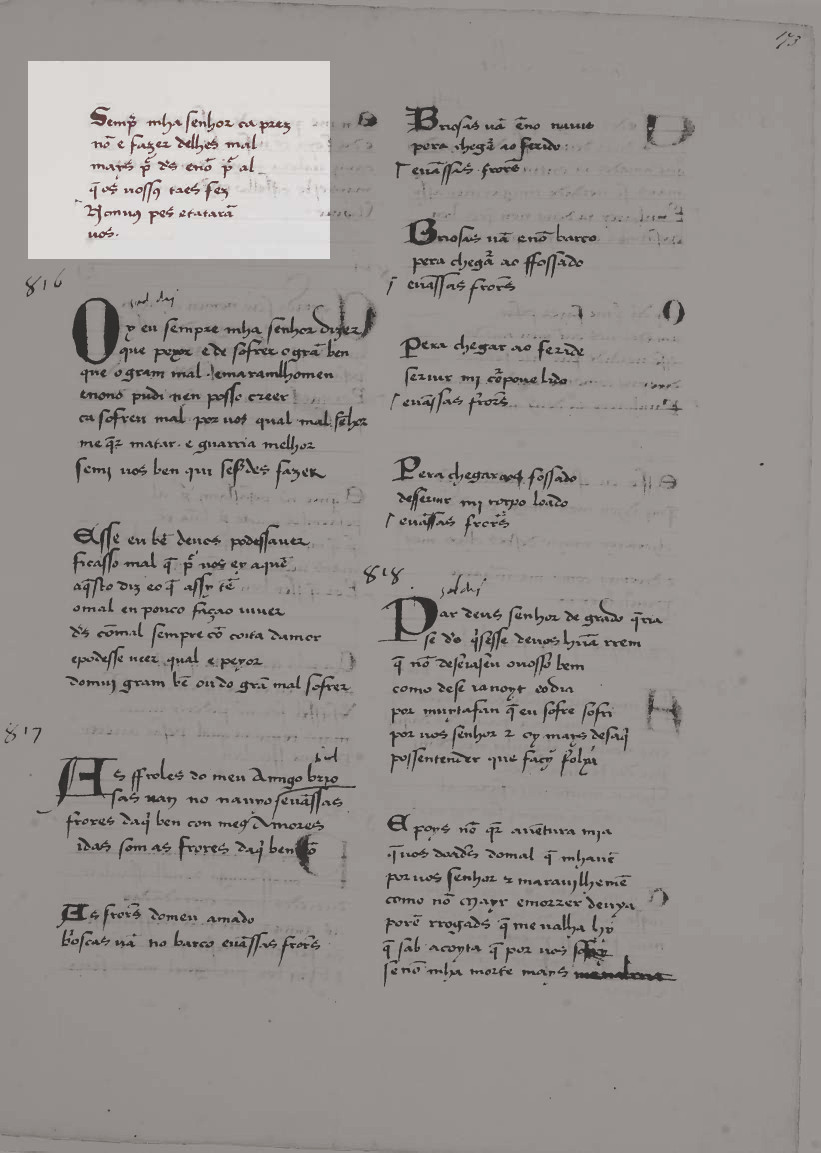 Semp̃ mha senhor ca prez
nõ e fazer delhes mal
mays p̃ ds̃ enõ p̃ al
q̃ os̃ vossꝯ taes fez
uos.
816
Oy eu sempre mha senhor dizer
que peyor e de sofrer o grã ben
que o gram mal. emaramlhomen
enono pudi nen posso creer
ca sofreu mal por uos qual mal senhor
me q̃r matar. e guarria melhor
semi uos ben qui sesdes fazer
Esse eu bẽ deuos podessauer
ficasso mal q̃ p̃ uos ey aquẽ
aq̃sto diz eo q̃ assy tẽ
omal en pouco façao uiuer
ds̃ cõmal sempre cõ coita damor
epodesse ueer qual e peyor
domuj gram bẽ ou do grã mal sofrer
817
As ffroles do meu Amigo brio
sas uan no nauyo seuãssas
frores daq̃ ben con meꝯ Amores
idas som as frores daq̃ ben cõ
As frorẽs domeu amado
b'oscas uã no barco euãssas frorẽs
73
Briosas uã ẽno nauio
pera chegã ao ferido
euãssas frorẽs
Briosas uã enõ barco
pera chegã ao ffossado
euãssas frorẽs
Pera chegar ao feride
seruir mi cõrpoue lido
euãssas frorẽs
Pera chegar ao fossado
desseruir mi corpo loado
euãssas frorẽs
818
Par deus senhor de grado q̃ria
se ds̃ q̃sesse deuos hũa rrem
q̃ nõ deseiasseu ouosso bem
como dese ianoyt eodia
por muytafan q̃ eu sofre sofri
por uos senhor
possentender que façy folya
E poys nõ q̃r auẽtura mia
q̃uos doades domal q̃ mhauẽ
por uos senhor z marauilhemẽ
como nõ
porẽ rrogads q̃ me ualha hy
q̃ sab acoyta q̃ por uos
senõ mha morte mays